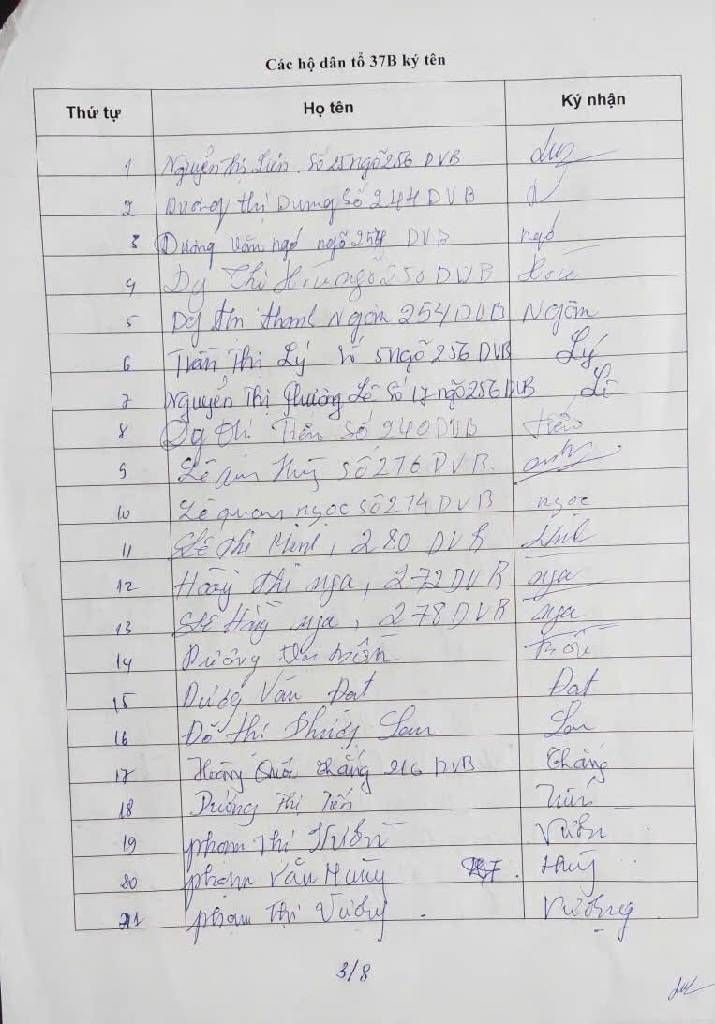 Các hộ dân tổ 37B ký tên
Thứ tự Họ tên Ký nhận
1 Nguyễn Thị Liên. Số 25 ngõ 256 DVB
2 Dương Thị Dung Số 244 DVB
3 Dương Văn ngó ngõ 254 DVB ngó
4 Dg Thị ngõ 250 DVB
5 Dg Thị Thanh Ngân 254 DVB Ngân
6 Trần Thị Lý Số 5 ngõ 256 DVB Lý
7 Nguyễn Thị Phường Lê Số 17 ngõ 256 DVB Lê
8 Dg Thị Số 240 DVB
9 Lê Số 276 DVB.
10 Lê quang ngọc Số 274 DVB ngọc
11 Lê Thị Minh, 280 DVB
12 Hoàng Thị Nga, 272 DVB Nga
13 Lê Hằng Nga, 278 DVB Nga
14 Dương
15 Dương Văn Đạt Đạt
16 Đỗ Thị Phương Lan Lan
17 Hoàng Quốc Thắng 216 DVB Thắng
18 Dương Thị Tiến
19 Phạm Thị
20 Phạm Văn Hùng Hùng
21 Phạm Thị Vượng Vượng
3/8